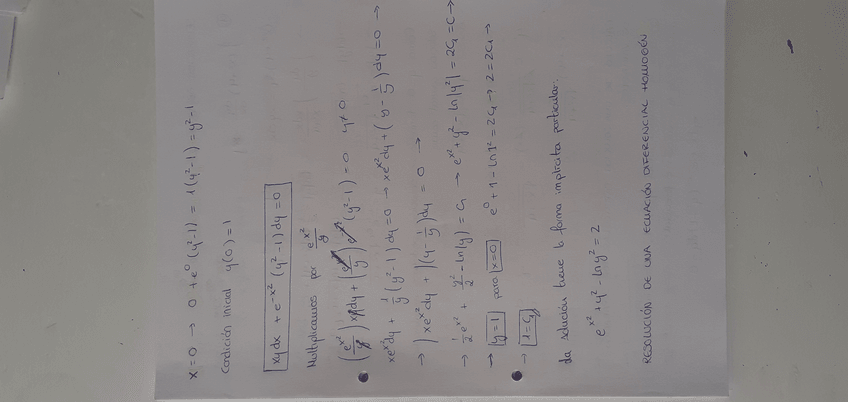 x=0 → 0 + e⁰ (y²-1) = 1 (y²-1) = y²-1
Condición inicial y(0)=1
xy dx + e^(-x²) (y²-1) dy = 0
Multiplicamos por e^(x²)/y
(e^(x²)/y) xy dy + (e^(x²)/y) e^(-x²) (y²-1) = 0 y≠0
xe^(x²) dy + 1/y (y²-1) dy = 0 → xe^(x²) dy + (y - 1/y) dy = 0 →
→ ∫xe^(x²) dy + ∫(y - 1/y) dy = 0 →
→ 1/2 e^(x²) + y²/2 - ln|y| = C₁ → e^(x²) + y² - ln|y²| = 2C₁ = C →
→ y=1 para x=0 e⁰ + 1 - ln1² = 2C₁ → 2 = 2C₁ →
→ 1=C₁
La solución tiene la forma implícita particular:
e^(x²) + y² - ln y² = 2
RESOLUCIÓN DE UNA ECUACIÓN DIFERENCIAL HOMOGÉN